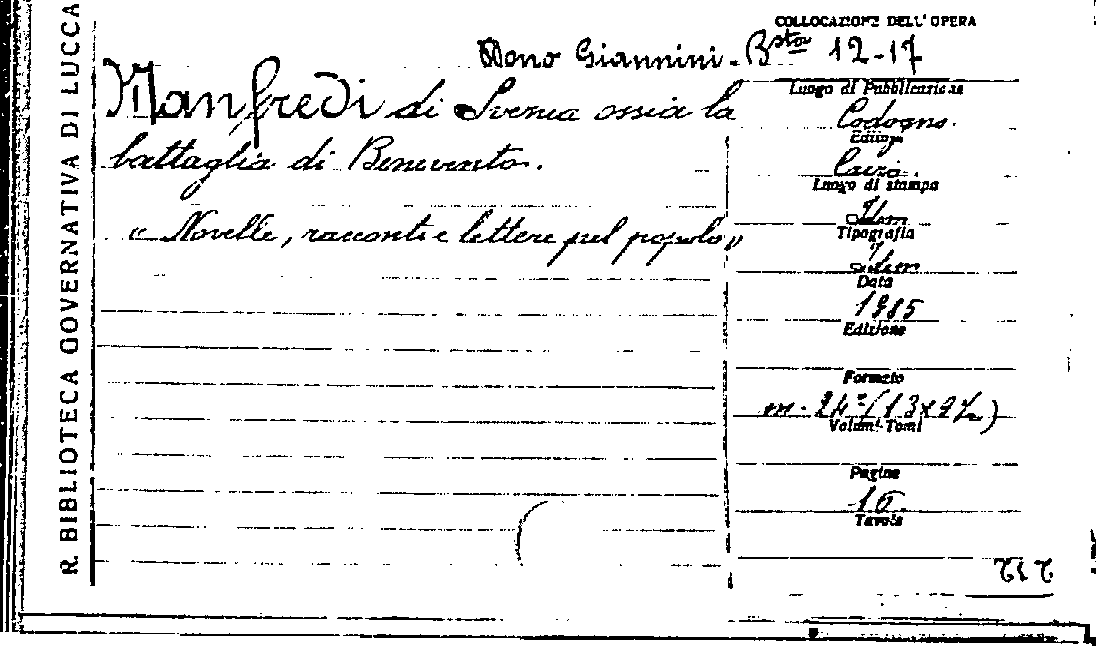 R. BIBLIOTECA GOVERNATIVA DI LUCCA
COLLOCAZIONE DELL'OPERA
Dono Giannini - Bsta 12-17
Manfredi di Svevia ossia la
battaglia di Benevento.
"Novelle, racconti e lettere pel popolo"
Luogo di Pubblicazione
Codogno.
Editore
Cairo.
Luogo di stampa
Idem
Tipografia
Idem
Data
1885
Edizione
Formato
m. 24° (13x9½)
Volumi-Tomi
Pagine
16.
Tavole